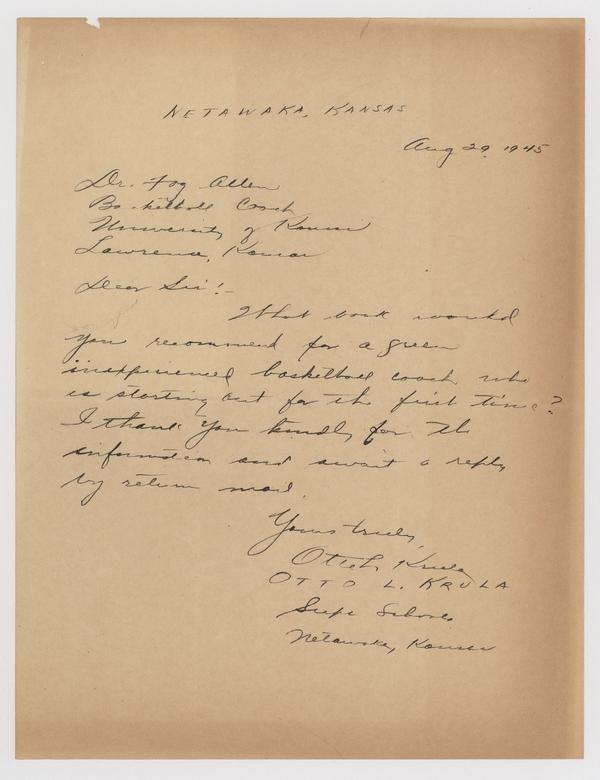 NETAWAKA, KANSAS
Aug 29, 1945
Dr. Fog Allen
Basketball Coach
University of Kansas
Lawrence, Kansas
Dear Sir!-
What book would
you recommend for a green
inexperienced basketball coach who
is starting out for the first time?
I thank you kindly for the
information and await a reply
by return mail.
Yours truly,
Otto L. Krula
OTTO L. KRULA
Supt Schools
Netawaka, Kansas